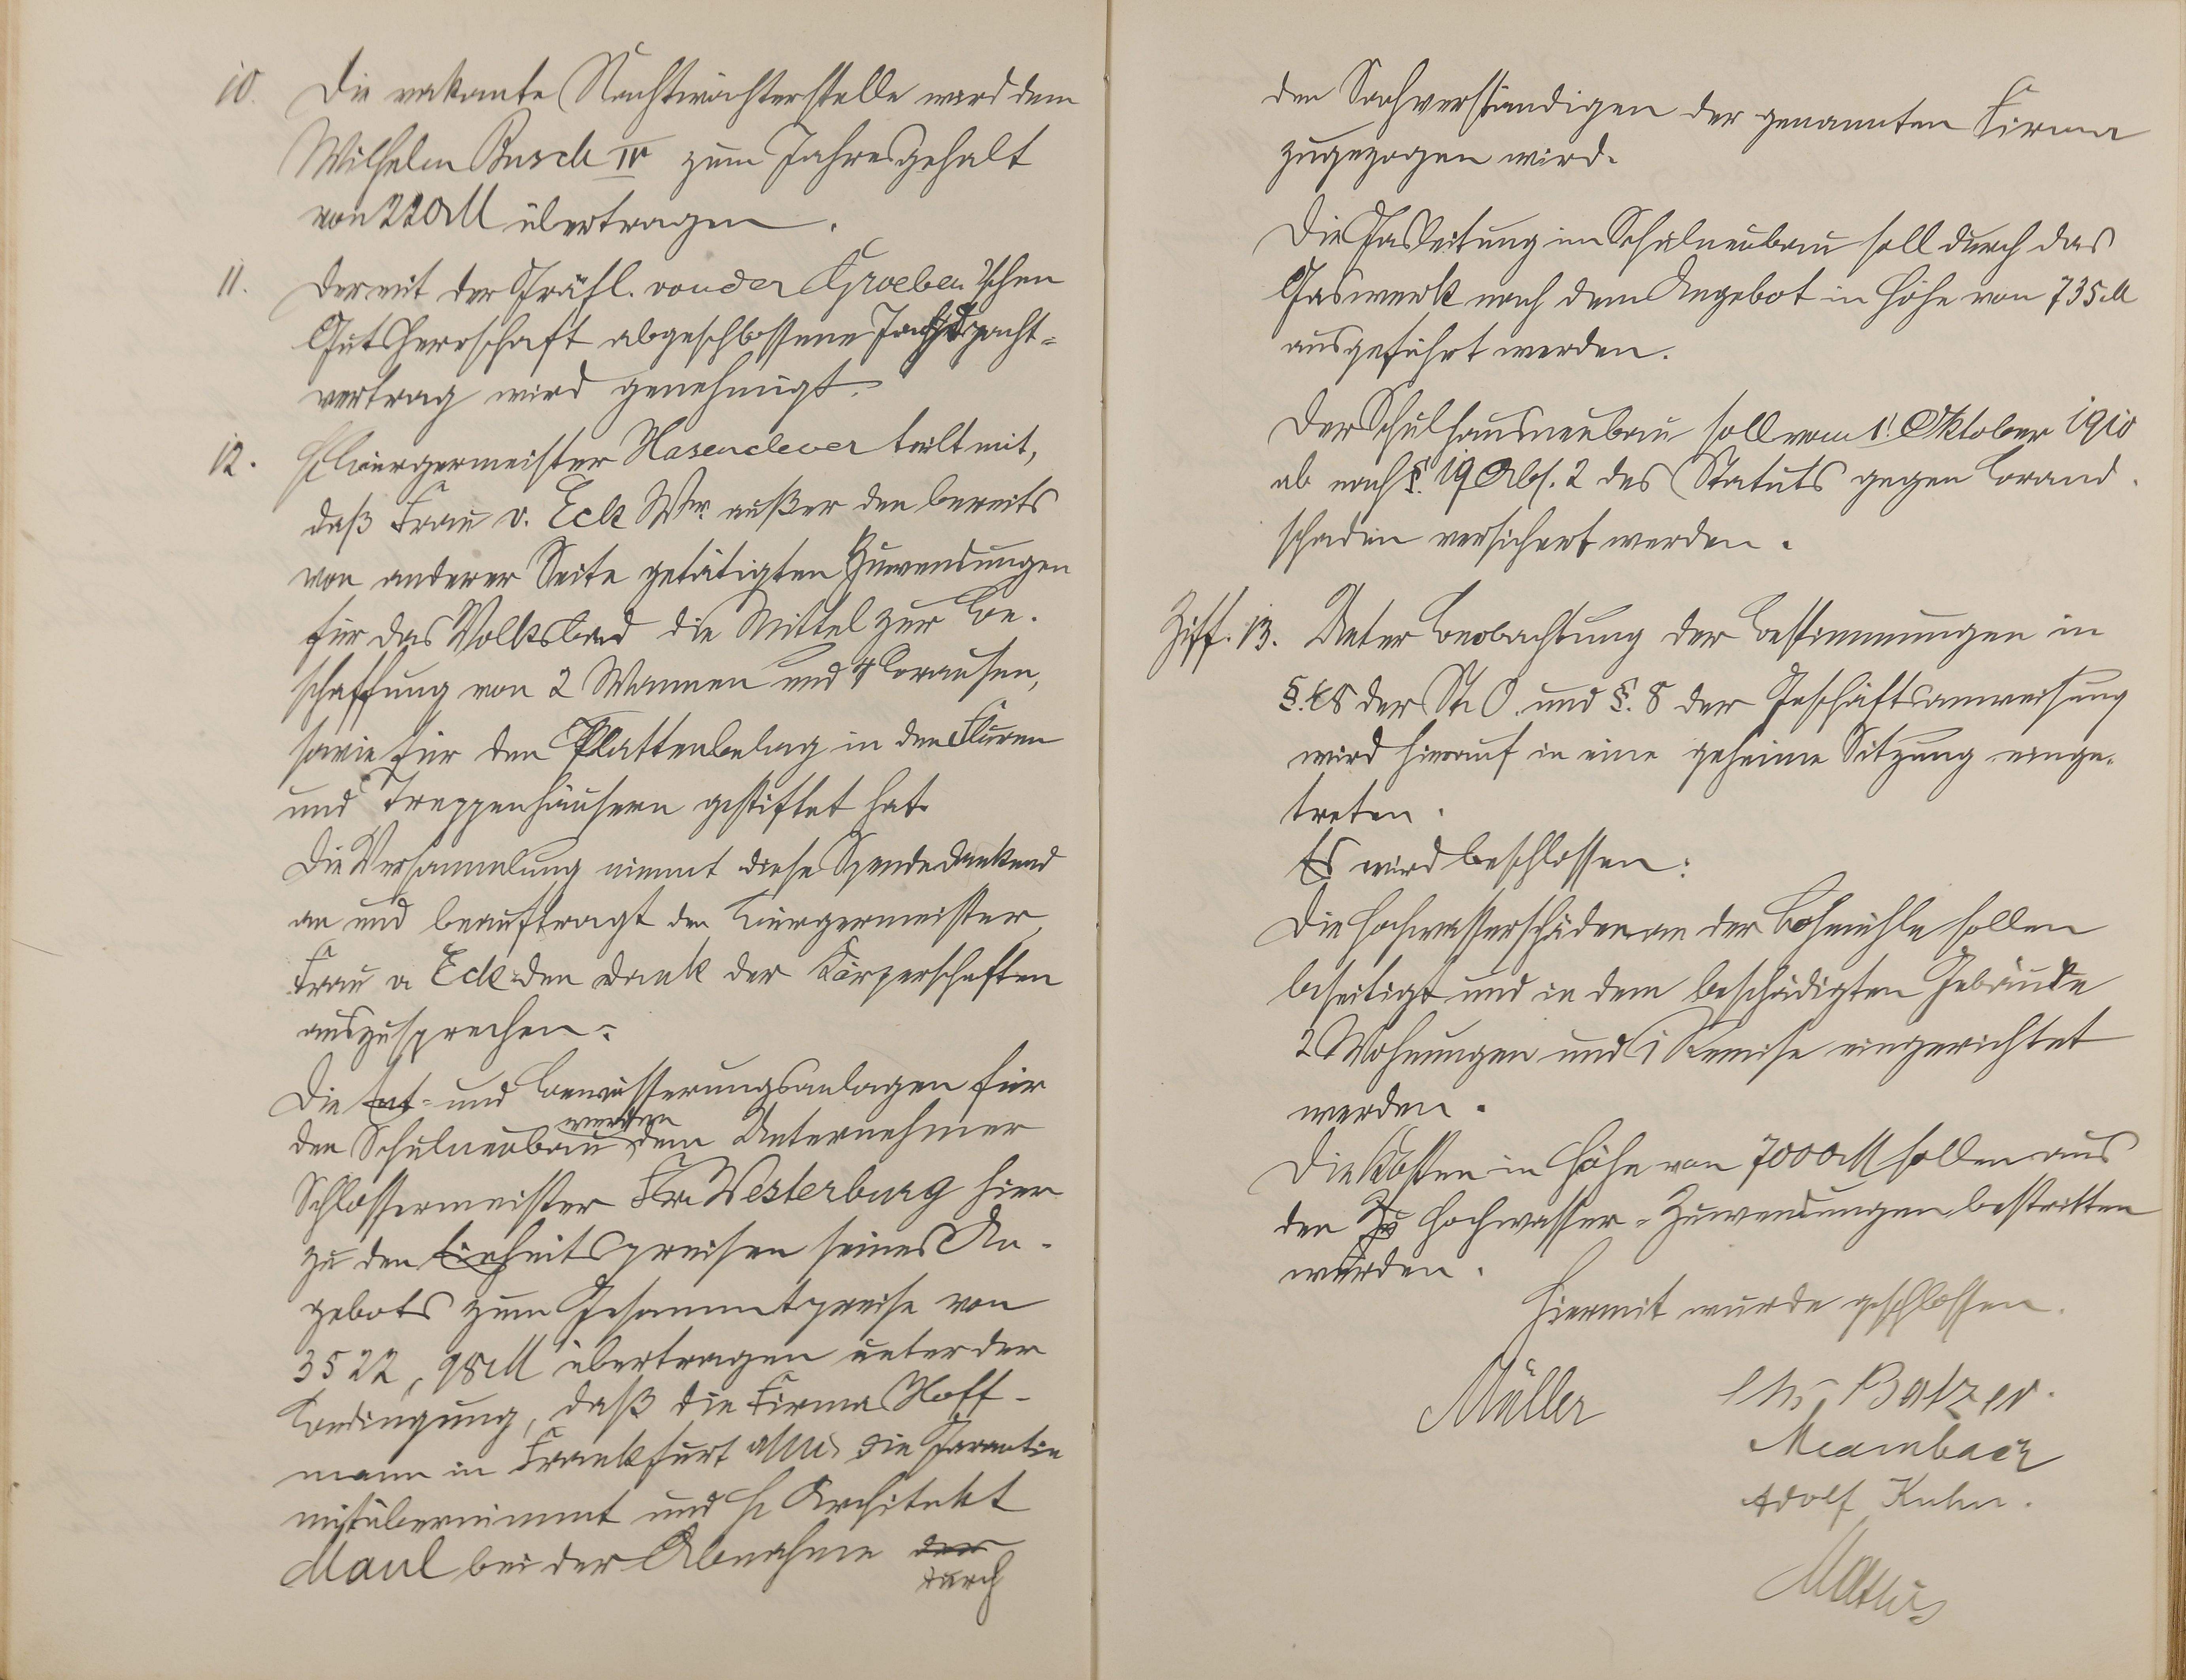 10. Die vakante Nachtwächterstelle ward dem
Wilhelm Busch IV zum Jahresgehalt
von 220 M übertragen.
11. Der mit der Gräfl. von der Groeben'schen
Gutsherrschaft abgeschlossene Jagdpacht=
vertrag wird genehmigt.
12. H. Bürgermeister Hasenclever teilt mit,
daß Frau v. Eck Wwe. außer den bereits
von anderer Seite getätigten Zuwendungen
für das Volksbad die Mittel zur Be-
schaffung von 2 Wannen und 4 Brausen,
sowie für den Plattenbelag in den Fluren
und Treppenhäusern gestiftet hat.
Die Versammlung nimmt diese Spende dankend
an und beauftragt den Bürgermeister
Frau v. Eck den Dank der Körperschaften
auszusprechen.
Die Ent- und Bewässerungsanlagen für
den Schulneubau werden dem Unternehmer
Schlossermeister Fr. Westerburg hier
zu den Einheitspreisen seines An-
gebots zum Gesammtpreise von
3522,98 M übertragen unter der
Bedingung, daß die Firma Hoff-
mann in Frankfurt a/M. die Garantie
mitübernimmt und H. Architekt
Maul bei der Abnahme der
durch
den Sachverständigen der genannten Firma
zugezogen wird.
Die Gasleitung im Schulneubau soll durch das
Gaswerk nach dem Angebot in Höhe von 735 M
ausgeführt werden.
Der Schulhausneubau soll vom 1. Oktober 1910
ab nach §. 19 Abs. 2 des Statuts gegen Brand-
schaden versichert werden.
Ziff. 13. Unter Beobachtung der Bestimmungen in
§. 48 der St. O. und §. 8 der Geschäftsanweisung
wird hierauf in eine geheime Sitzung einge-
treten.
Es wird beschlossen:
Die Hochwasserschäden an der Lohmühle sollen
beseitigt und in dem beschädigten Gebäude
2 Wohnungen und 1 Remise eingerichtet
werden.
Die Kosten in Höhe von 7000 M sollen aus
den Zu Hochwasser-Zuwendungen bestritten
werden.
Hiermit wurde geschlossen.
Müller Batzer.
Adolf Kuhn.